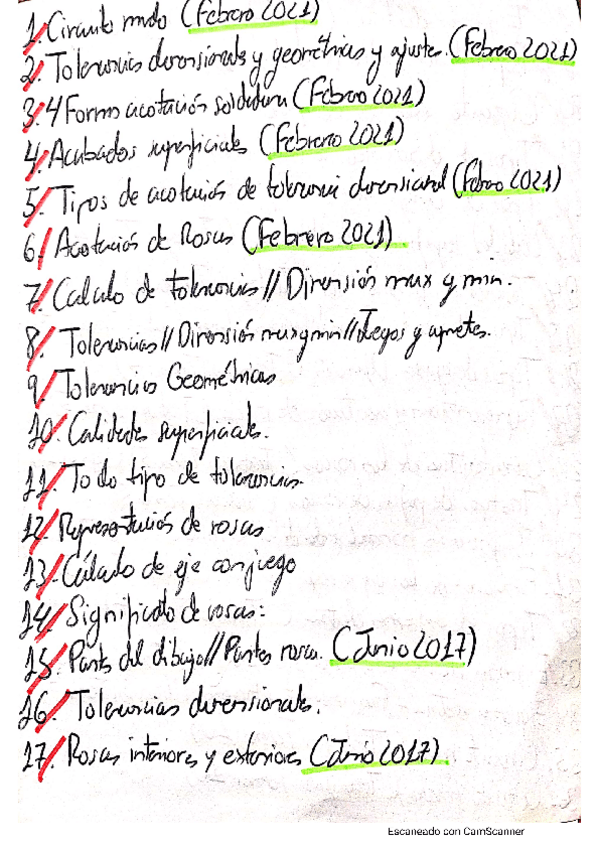 1. Circuito mando (Febrero 2021)
2. Tolerancias dimensionales y geométricas y ajustes. (Febrero 2021)
3. 4 Formas acotación soldadura (Febrero 2021)
4. Acabados superficiales (Febrero 2021)
5. Tipos de acotación de tolerancia dimensional (Febrero 2021)
6. Acotación de Roscas (Febrero 2021)
7. Calculo de tolerancias // Dimensión max y min.
8. Tolerancias // Dimensión max y min // Juegos y aprietes.
9. Tolerancias Geométricas
10. Calidades superficiales.
11. Todo tipo de tolerancias.
12. Representación de roscas
13. Cálculo de eje con juego
14. Significado de roscas:
15. Partes del dibujo // Partes rosca. (Junio 2017)
16. Tolerancias dimensionales.
17. Roscas interiores y exteriores (Junio 2017)
Escaneado con CamScanner